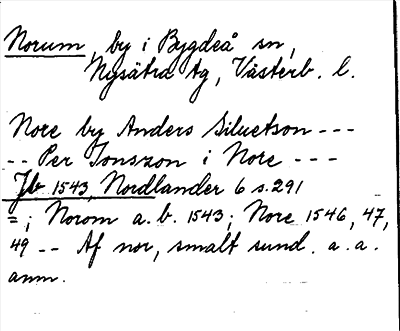 Norum, by i Bygdeå sn,
Nysätra tg, Västerb. l.
Nore by Anders Siluetson ---
-- Per Jonszon i Nore ---
Jb 1543, Nordlander 6 s. 291
=; Norom a.b. 1543; Nore 1546, 47,
49 -- Af nor, smalt sund. a.a.
anm.